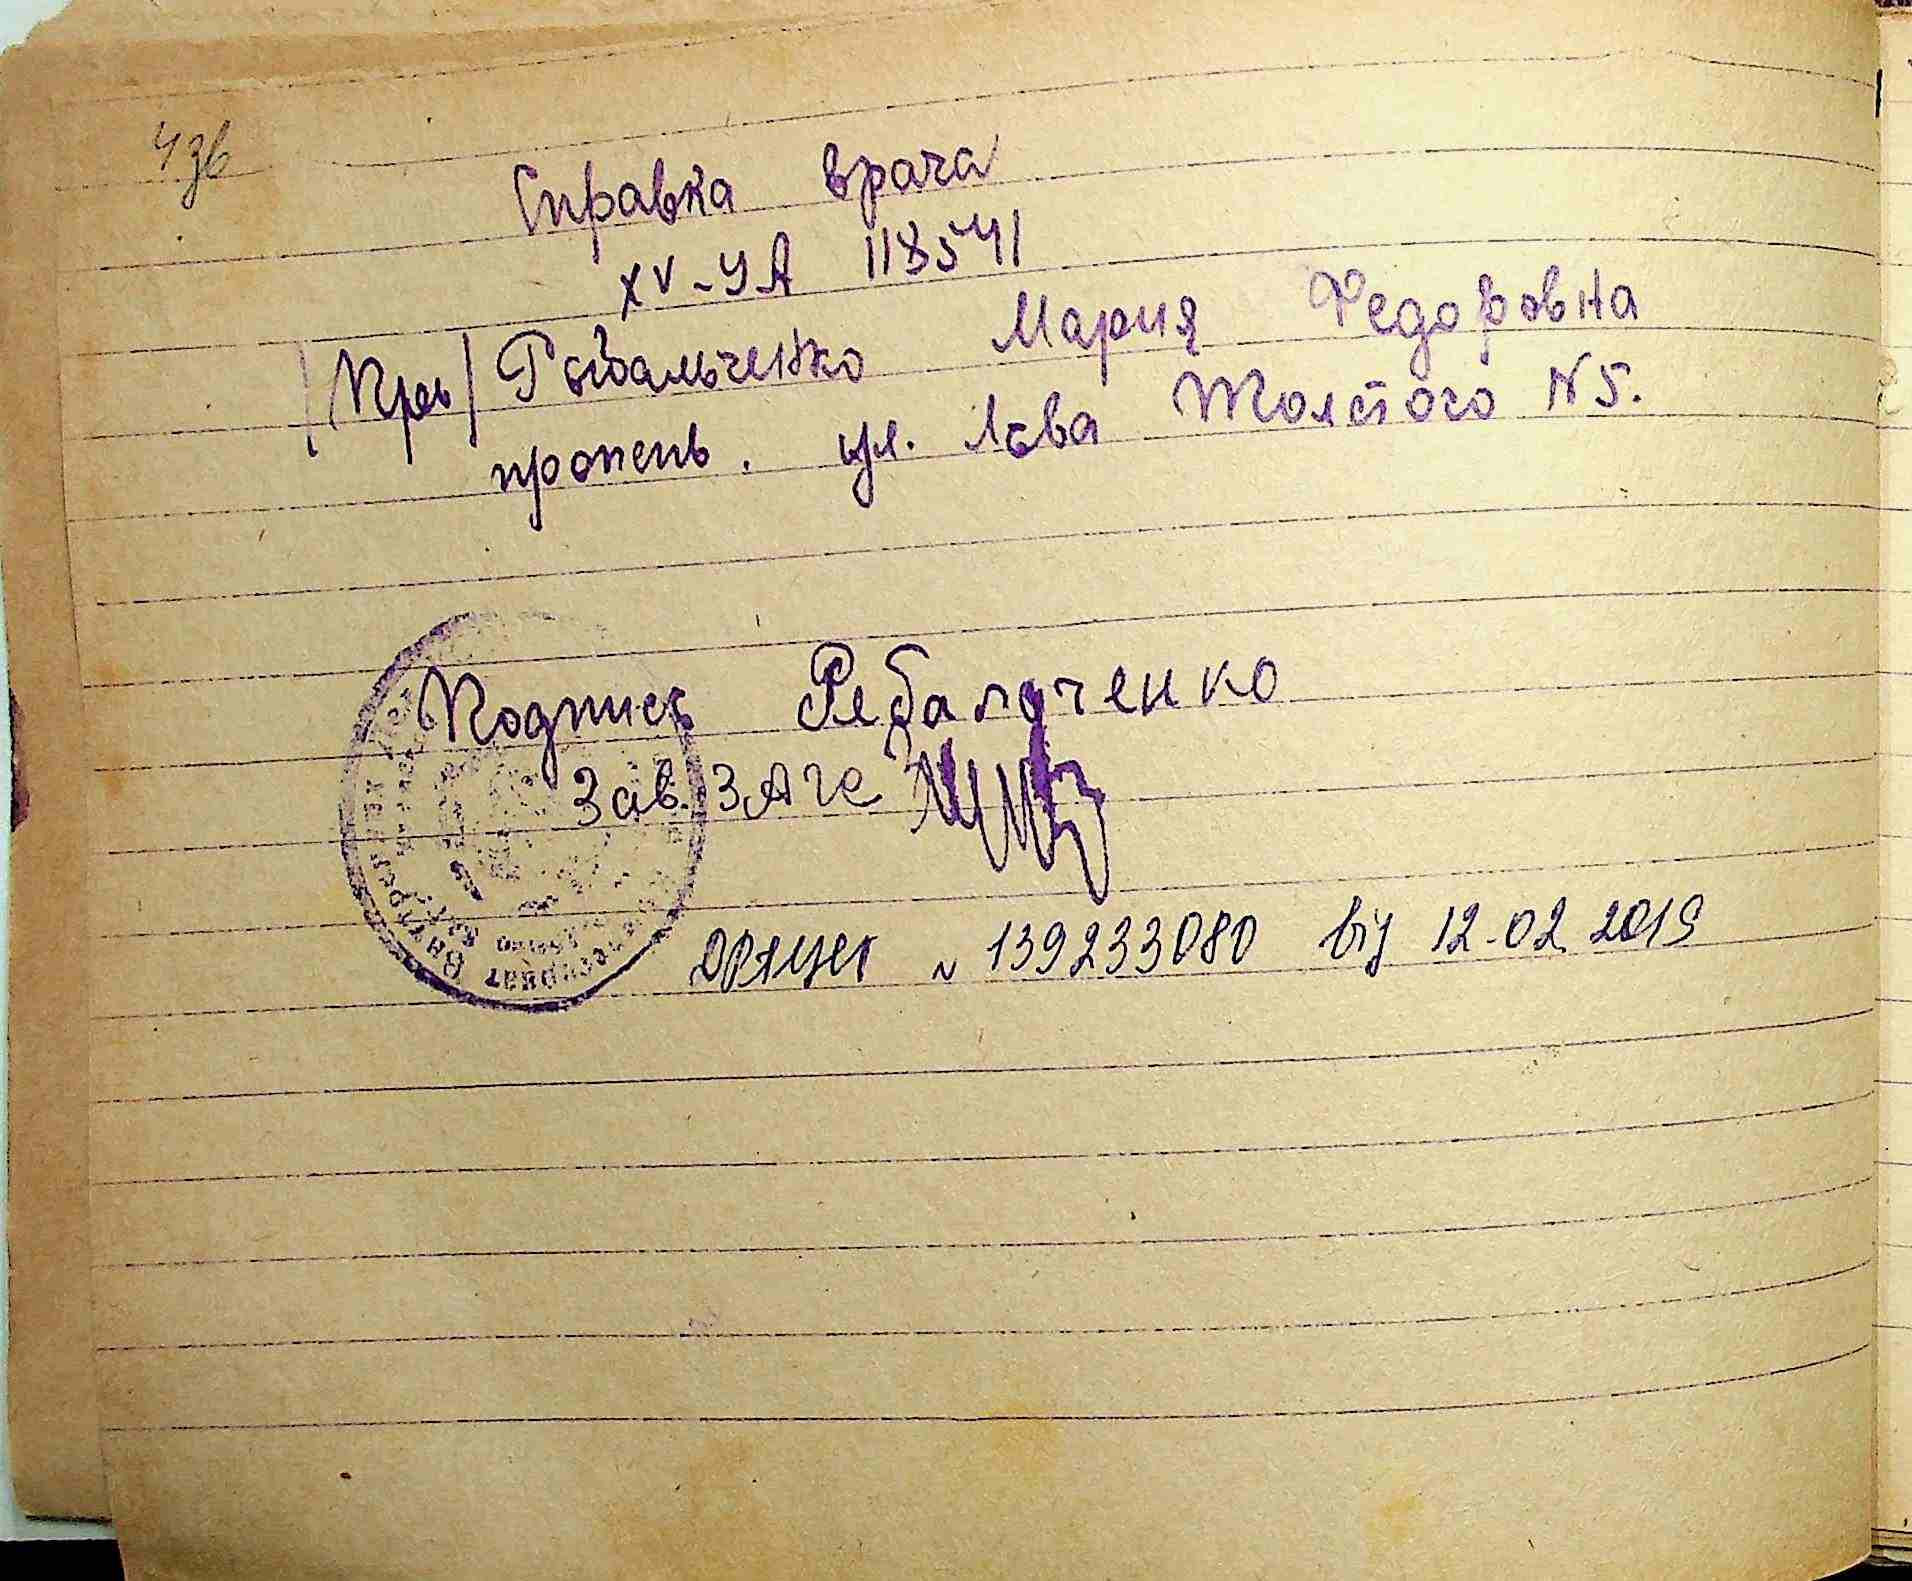 436
Справка врача
XV-УА 118541
Рыбальченко Мария Федоровна
ул. Льва Толстого N 5.
Подпись Рыбальченко
Зав. ЗАГС
N 139233080 від 12.02.2019